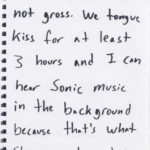 not gross. We tongue
kiss for at least
3 hours and I can
hear Sonic music
in the background
because that's what